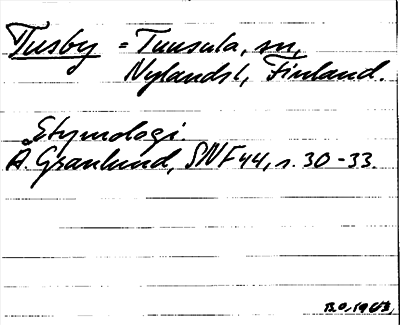 Tusby = Tuusula, sn,
Nylands l, Finland.
Etymologi.
A. Granlund, SNF 44, s. 30-33.
B.O. 1963.